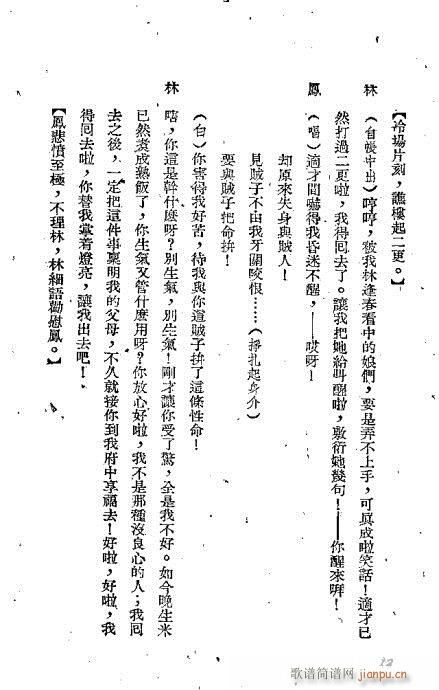 【冷場片刻，譙樓起二更。】
林
（自帳中出）哼哼，被我林逢春看中的娘們，要是弄不上手，可眞成啦笑話！適才已
然打過二更啦，我得回去了。讓我把她給叫醒啦，敷衍她幾句！——你醒來啊！
鳳
（唱）適才間嚇得我昏迷不醒，——哎呀！
却原來失身與賊人！
見賊子不由我牙關咬恨……（掙扎起身介）
要與賊子把命拚！
（白）你害得我好苦，待我與你這賊子拚了這條性命！
林
唔，你這是幹什麼呀？別生氣，別生氣！剛才讓你受了驚，全是我不好。如今晚生米
已然煮成熟飯了，你生氣又管什麼用呀？你放心好啦，我不是那種沒良心的人；我回
去之後，一定把這件事稟明我的父母，不久就接你到我府中享福去！好啦，好啦，我
得回去啦，你替我掌着燈亮，讓我出去吧！
【鳳悲憤至極，不理林，林細語勸慰鳳。】
12
歌谱简谱网
jianpu.cn